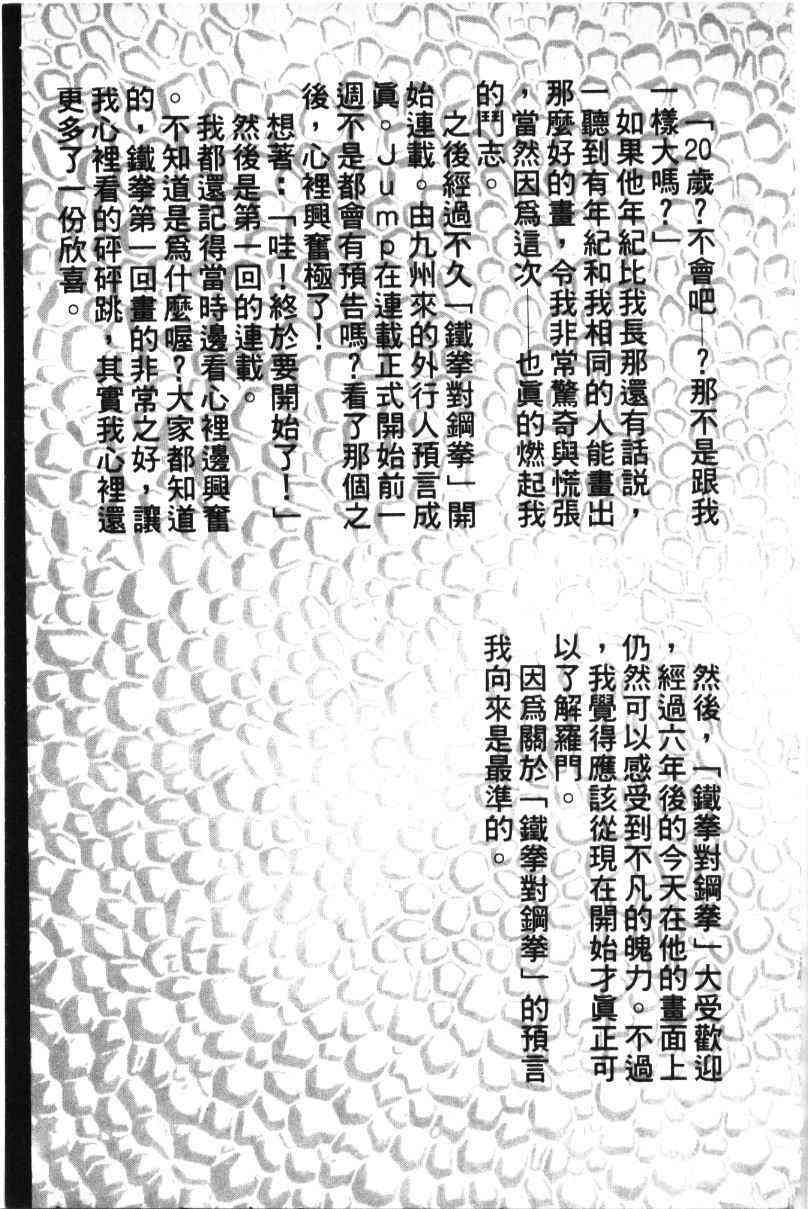 「20歲？不會吧——？那不是跟我
一樣大嗎？」
如果他年紀比我長那還有話説，
一聽到有年紀和我相同的人能畫出
那麼好的畫，令我非常驚奇與慌張
，當然因爲這次——也眞的燃起我
的鬥志。
之後經過不久「鐵拳對鋼拳」開
始連載。由九州來的外行人預言成
眞。Jump在連載正式開始前一
週不是都會有預告嗎？看了那個之
後，心裡興奮極了！
想著：「哇！終於要開始了！」
然後是第一回的連載。
我都還記得當時邊看心裡邊興奮
。不知道是爲什麼喔？大家都知道
的，鐵拳第一回畫的非常之好，讓
我心裡看的砰砰跳，其實我心裡還
更多了一份欣喜。
然後，「鐵拳對鋼拳」大受歡迎
，經過六年後的今天在他的畫面上
仍然可以感受到不凡的魄力。不過
，我覺得應該從現在開始才眞正可
以了解羅門。
因爲關於「鐵拳對鋼拳」的預言
我向來是最準的。